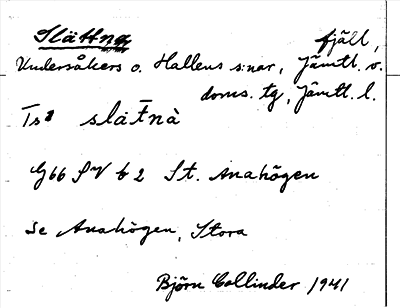 Slättna fjäll,
Undersåkers o. Hallens s:nar, Jämtl. v.
doms. tg, Jämtl. l.
Ts: slät̄nà
G66 SV b 2 St. Anahögen
Se Anahögen, Stora
Björn Collinder 1941